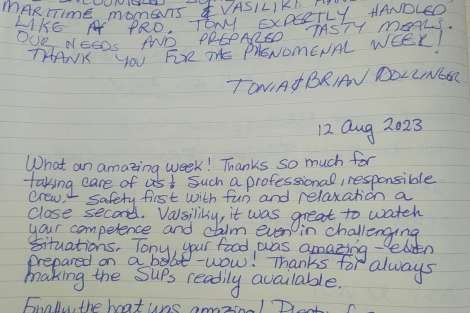 MARITIME MOMENTS & VASILIKI HANDLED
LIKE A PRO. TONY EXPERTLY HANDLED
OUR NEEDS AND PREPARED TASTY MEALS.
THANK YOU FOR THE PHENOMENAL WEEK!
TONIA & BRIAN DOLLINGER
12 Aug 2023
What an amazing week! Thanks so much for
taking care of us! Such a professional, responsible
crew. Safety first with fun and relaxation a
close second. Valsiliky, it was great to watch
your competence and calm even in challenging
situations. Tony, your food was amazing - even
prepared on a boat - wow! Thanks for always
making the SUPs readily available.
Finally, the boat was amazing!